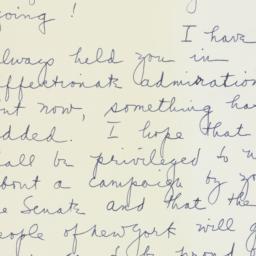 going !
I have
always held you in
affectionate admiration
but now, something has
added. I hope that
shall be privileged to
about a campaign by you
the Senate and that the
people of New York will